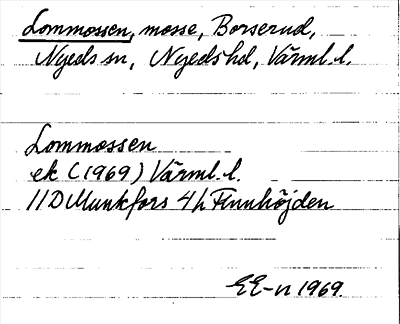 Lommossen, mosse, Borserud,
Nyeds sn, Nyeds hd, Värml. l.
Lommossen
ek (1969) Värml. l.
11D Munkfors 4h Finnhöjden
EE-n 1969.